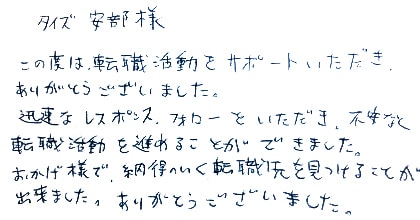 タイズ 安部様
この度は、転職活動をサポートいただき、
ありがとうございました。
迅速なレスポンス、フォローをいただき、不安なく
転職活動を進めることができました。
おかげ様で、納得のいく転職先を見つけることが
出来ました。ありがとうございました。